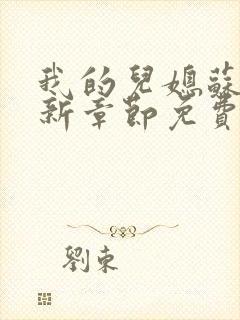 我的兒媳蘇
新章節免費
劉東